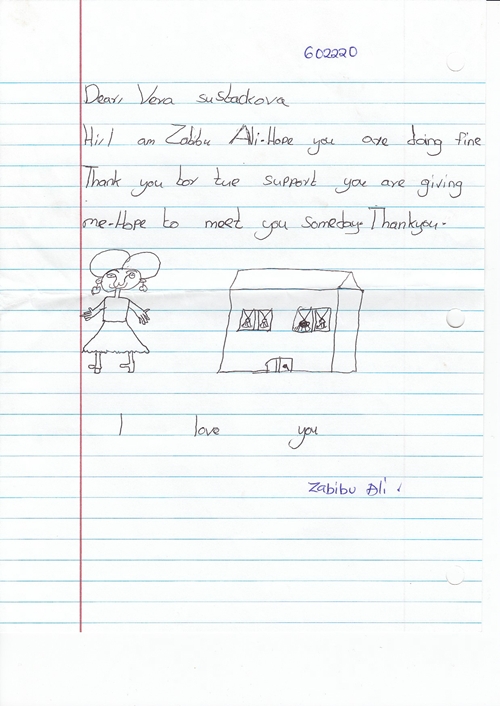 602220
Dear, Vera sustackova
Hi, I am Zabibu Ali-Hope you are doing fine
Thank you for tue support you are giving
me-Hope to meet you someday. Thankyou.
I love you
Zabibu Ali.